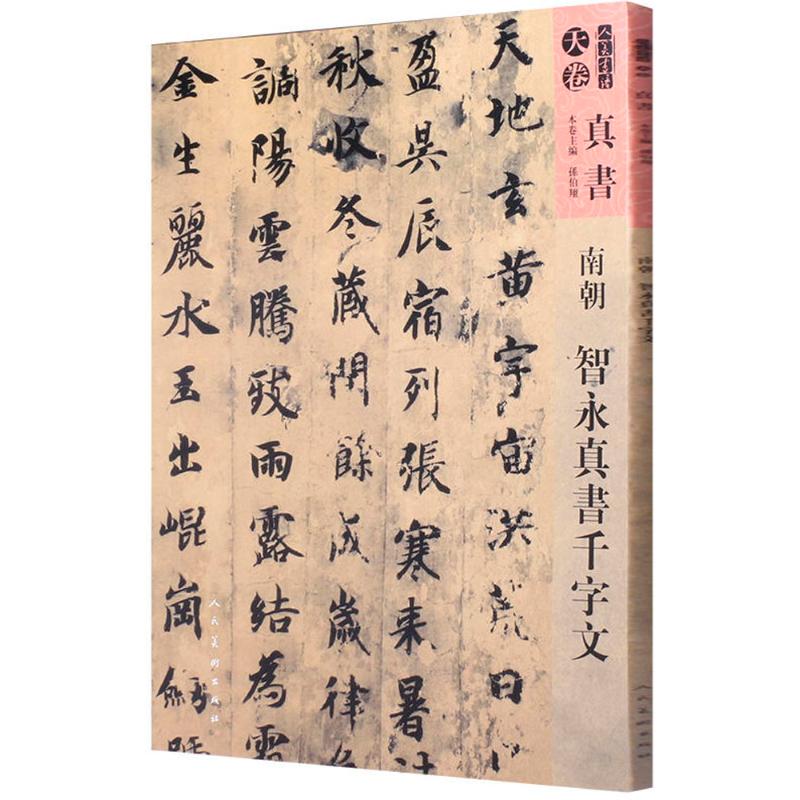 人美書譜
天卷
真書
本卷主編 孫伯翔
南朝 智永真書千字文
天地玄黄宇宙洪荒日
盈昃辰宿列張寒来暑
秋收冬藏閏餘成歲律
調陽雲騰致雨露結為
金生麗水玉出崐崗
人民美術出版社
真書
人民美術出版社